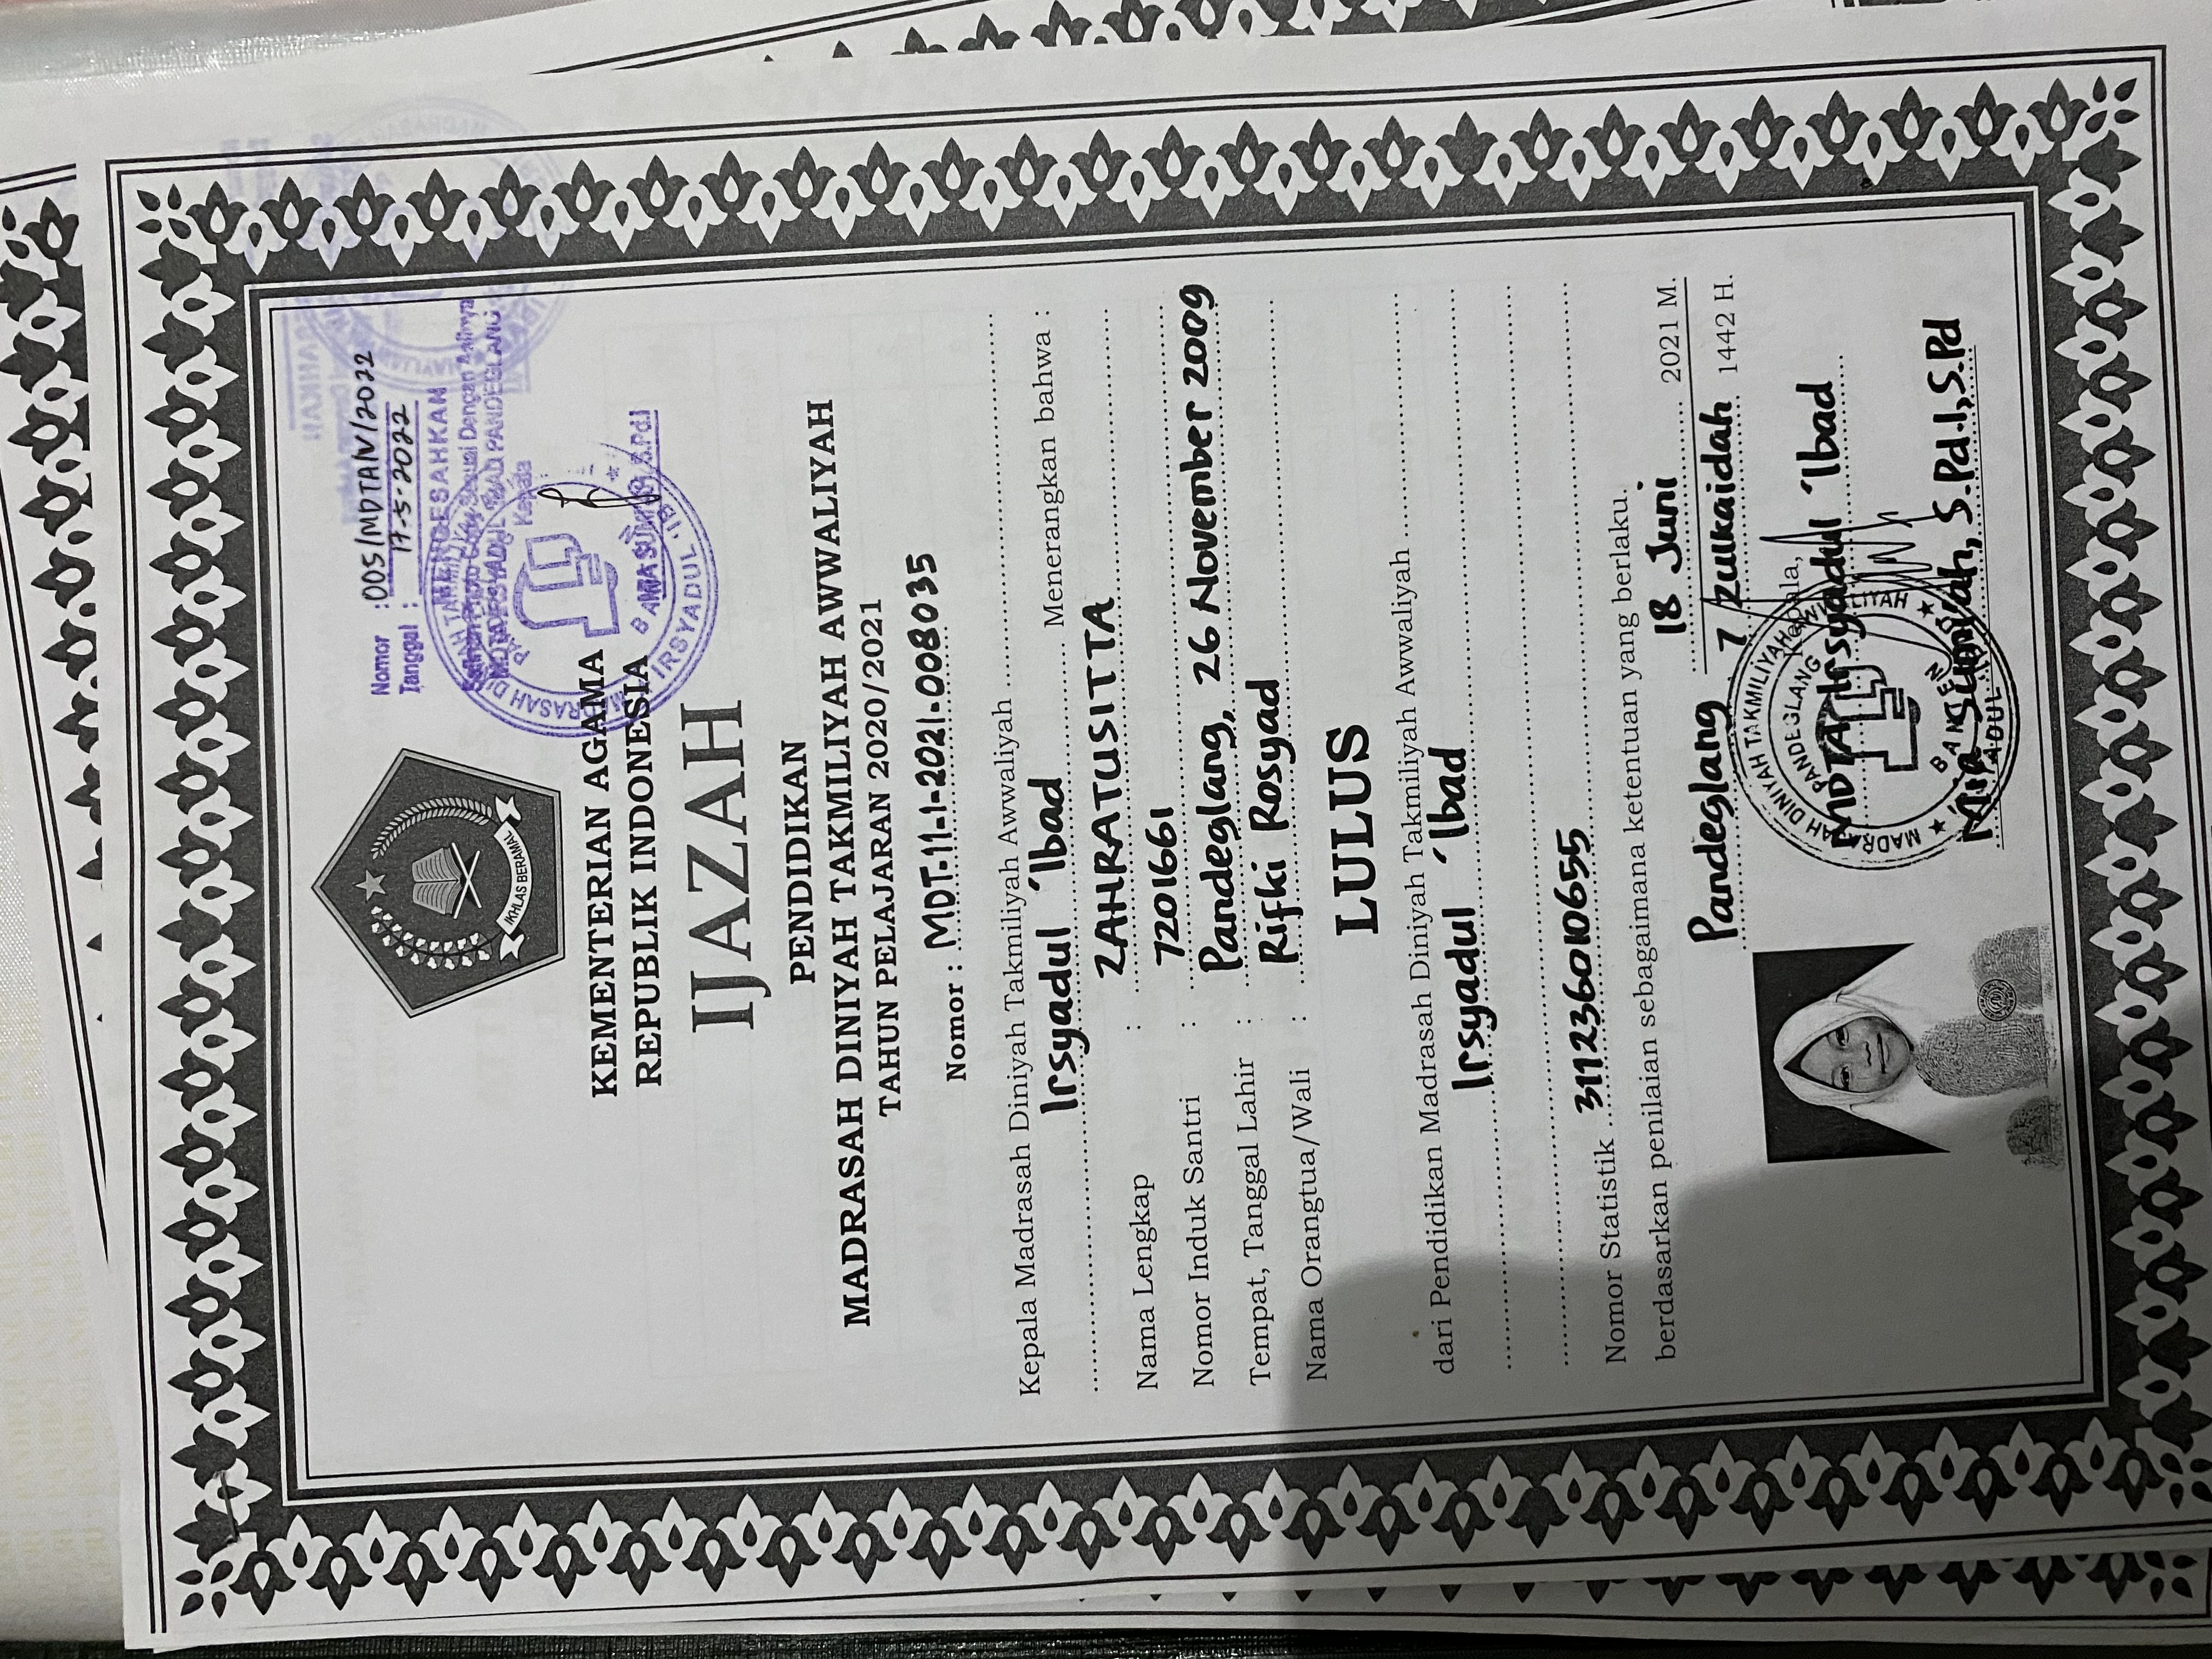 IKHLAS BERAMAL
Nomor : 005/MDTA/V/2022
Tanggal : 17-5-2022
MENGESAHKAN
Salinan Photo Copy Sesuai Dengan Aslinya
MDTA IRSYADUL 'IBAD PANDEGLANG
Kepala
MIA SUMI'AH, S.Pd.I
KEMENTERIAN AGAMA
REPUBLIK INDONESIA
IJAZAH
PENDIDIKAN
MADRASAH DINIYAH TAKMILIYAH AWWALIYAH
TAHUN PELAJARAN 2020/2021
Nomor : MDT-11-1-2021-008035
Kepala Madrasah Diniyah Takmiliyah Awwaliyah
Irsyadul 'Ibad Menerangkan bahwa :
Nama Lengkap : ZAHRATUSITTA
Nomor Induk Santri : 7201661
Tempat, Tanggal Lahir : Pandeglang, 26 November 2009
Nama Orangtua/Wali : Rifki Rosyad
LULUS
dari Pendidikan Madrasah Diniyah Takmiliyah Awwaliyah
Irsyadul 'Ibad
Nomor Statistik 311236010655
berdasarkan penilaian sebagaimana ketentuan yang berlaku.
18 Juni 2021 M.
Pandeglang, 7 Zulkaidah 1442 H.
Kepala,
MDTA Irsyadul 'Ibad
MADRASAH DINIYAH TAKMILIYAH AWWALIYAH
PANDEGLANG
BANTEN
Mia Sumi'ah, S.Pd.I, S.Pd